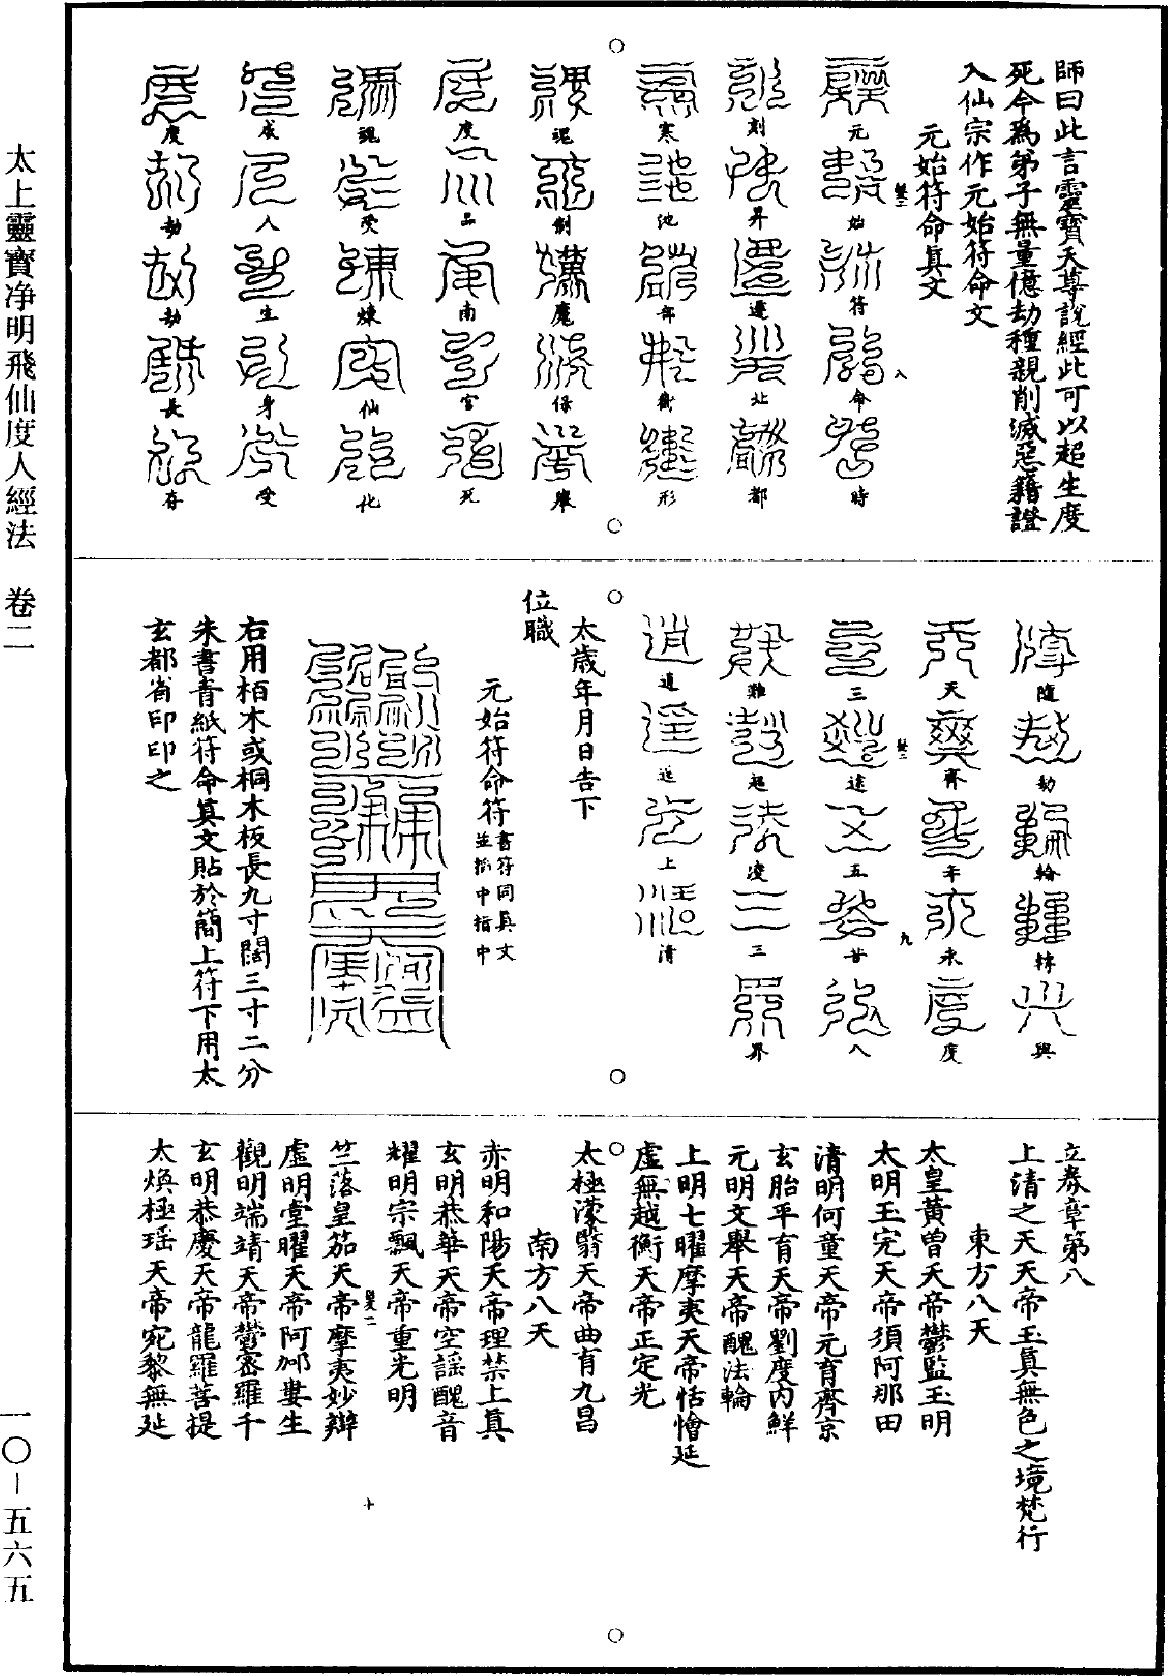 師曰此言靈寶天尊說經此可以超生度
死今爲弟子無量億劫種親削滅惡籍證
入仙宗作元始符命文
元始符命真文
元始符命時
刻昇遷北都
寒池部衛形
魂制魔保舉
度品南宮死
魂受煉仙化
成人生身受
度劫劫長存
隨劫輪轉興
天齊年永度
三途五苦八
難超凌三界
逍遙上清
太歲年月日告下
位職
元始符命符書符同真文
並掐中指中
右用栢木或桐木板長九寸闊三寸二分
朱書青紙符命真文貼於簡上符下用太
玄都省印印之
立券章第八
上清之天天帝玉真無色之境梵行
東方八天
太皇黄曾天帝鬱監玉明
太明玉完天帝須阿那田
清明何童天帝元育齊京
玄胎平育天帝劉度内鮮
元明文舉天帝醜法輪
上明七曜摩夷天帝恬憎延
虛無越衡天帝正定光
太極濛翳天帝曲有九昌
南方八天
赤明和陽天帝理禁上真
玄明恭華天帝空謡醜音
耀明宗飄天帝重光明
竺落皇笳天帝摩夷妙辯
虛明堂曜天帝阿那婁生
觀明端靖天帝鬱密羅千
玄明恭慶天帝龍羅菩提
太焕極瑶天帝宛黎無延
太上靈寶净明飛仙度人經法 卷二
一〇–五六五